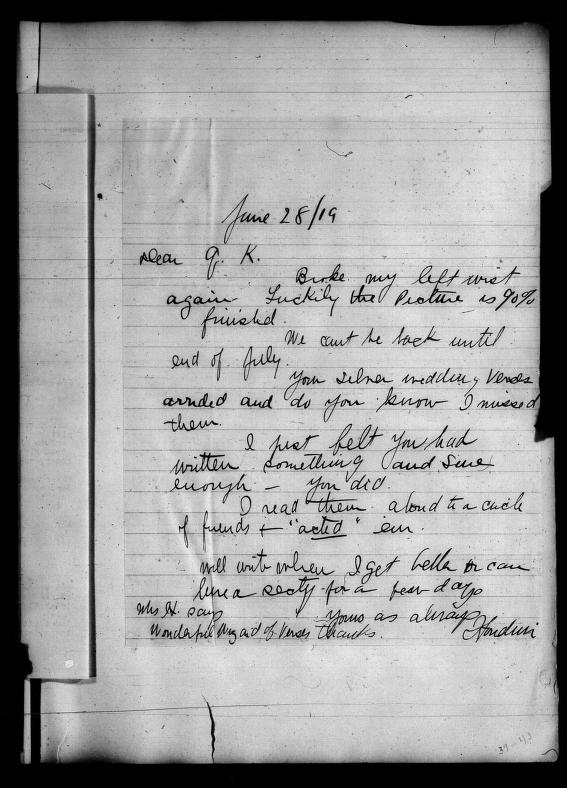 June 28/19
Dear Q. K.
Broke my left wrist
again Luckily the Picture is 90%
finished.
We cant be back until
end of July.
Your silver wedding verses
arrived and do you know I missed
them.
I just felt you had
written something and sure
enough – you did.
I read them aloud to a circle
of friends + "acted" em.
will write when I get better or can
hire a secty for a few days
Mrs H. says yours as always
Wonderful Wizard of Verses thanks. Houdini
39-43